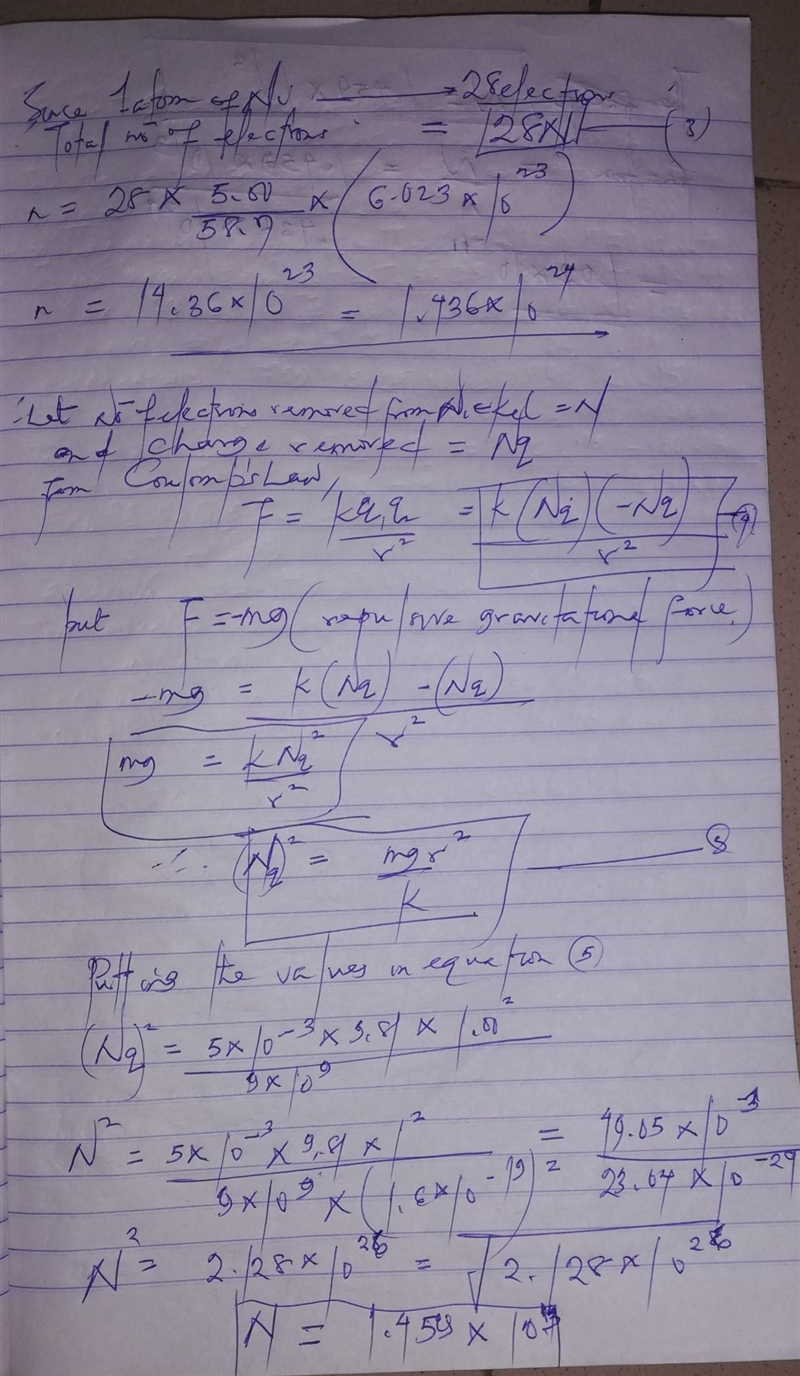 Since 1 atom of Ni → 28 electrons
Total no of electrons = 28N — (3)
n = 28 × 5.00/58.7 × (6.023×10^23)
n = 14.36×10^23 = 1.436×10^24
∴ Let no of electrons removed from Nickel = N
and charge removed = Nq
from Coulomb's Law,
F = kq1q2/r^2 = k(Nq)(-Nq)/r^2 — (4)
but F = -mg (repulsive gravitational force)
-mg = k(Nq) -(Nq)/r^2
mg = kNq^2/r^2
∴ (Nq)^2 = mgr^2/k — (5)
Putting the values in equation (5)
(Nq)^2 = 5×10^-3 × 9.81 × 1.00^2/9×10^9
N^2 = 5×10^-3 × 9.81 × 1^2/9×10^9 × (1.6×10^-19)^2 = 49.05×10^-3/23.04×10^-29
N^2 = 2.128×10^26 = √2.128×10^26
N = 1.459×10